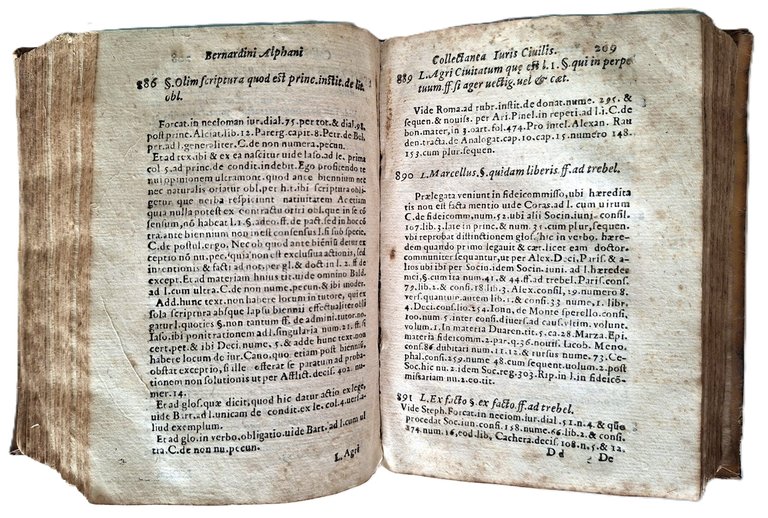 Bernardini Alphani
886 §. Olim scriptura quod est princ. instit. de lit.
obl.
Forcat. in necioman iur. dial. 75. per tot. & dial. 91.
post princ. Alciat. lib. 12. Parerg. capit. 8. Petr. de Bel.
per. ad l. generaliter. C. de non numera. pecun.
Et ad tex. ibi & ex ea nascitur uide Iaso. ad le. prima
col. 5. ad princ. de condit. indebit. Ego profitendo te
nui opinionem ultramont. quod ante biennium nec
nec naturalis oriatur obl. per h. t. ibi scriptura obli-
getur. que uerba respiciunt natiuitatem Actiūm
quia nulla potest ex contractu oriri obl. que in se cō
sensum, nō habeat l. 1. §. adeo. ff. de pact. sed in hoc cō
tra. ante biennium non inest consensus l. si sub specie,
C. de postul. ergo. Nec ob quod ante bieniū detur ex
ceptio nō nu. pec. quia non est exclusiua actionis, sed
intentionis & facti ad not. per gl. & doct. in l. 2. ff de
except. Et ad materiam huius tit. uide omnino Bald.
ad l. cum ultra. C. de non nume. pecun. & ibi moder.
Add. hunc text. non habere locum in tutore, qui ex
sola scriptura absque lapsu biennii effectualiter obli
gatur l. quoties §. non tantum ff. de admini. tutor. no.
Iaso. ibi poni trationem ad l. singularia num. 21. ff. si
cert. pet. & ibi Deci. nume. 5. & adde hunc text. non
habere locum de iur. Cano. quo. etiam post bienniū,
obstat exceptio, si ille offerat se paratum ad proba-
tionem non solutionis ut per Afflict. decis. 402. nu-
mer. 14.
Et ad glos. quæ dicit, quod hic datur actio ex lege,
uide Bart. ad l. unicam de condit. ex le. col. 4. uersi. a-
liud exemplum.
Et ad glo. in verbo, obligatio. uide Bart. ad l. cum ul
tra. C. de non nu. pecun.
L. Agri
Collectanea Iuris Ciuilis. 209
889 L. Agri Ciuitatum que est l. 1. §. qui in perpe
tuum. ff. si ager uectig. uel & cæt.
Vide Roma. ad rubr. instit. de donat. nume. 295. &
sequen. & nouiss. per Ari. Pinel. in repeti. ad l. 1. C. de
bon. mater, in 3. part. fol. 474. Pro intel. Alexan. Rau
den. tracta. de Analogat. cap. 10. cap. 15. numero 148.
153. cum plur. sequen.
890 L. Marcellus. §. quidam liberis. ff. ad trebel.
Prælegata veniunt in fideicommisso, ubi hæredita
tis non est facta mentio uide Coras. ad l. cum uirum
C. de fideicomm, num. 52. ubi alii Socin. iuni. consil.
107. lib. 3. late in princ. & num. 35. cum plur, sequen.
vbi reprobat distinctionem glos. hic in verbo. hæredem
quando primo legauit & cæt. licet eam doctor.
communiter sequantur, ut per Alex. Deci, Paris. & a-
los ubi ibi per Socin. idem Socin. iuni. ad l. hæredes
mei §. cum ita num. 41. & 44. ff. ad trebel. Paris. cons.
79. lib. 2. & consi. 18. lib. 3. Alex. consil, 19. numero 8.
vers. quantum autem lib. 1. & consi. 33 nume. 1. libr.
4. Deci. conf. lio. 254. Ioan. de Monte sperello. consi,
100. num. 5. inter consi. diuers. ad caus. vltim. volunt.
volum. 1. In materia Duaren. tit. 5. ca. 28. Marza. Epi.
materia fideicomm. 2. par. q. 36. nouiss. Iacob. Meno.
conf. 86. dubitari num. 11. 12. & rursus nume. 73. Ce-
phal. cons. 259. nume 48. cum sequent. uolum. 2. post
Soc. hic nu. 2. idem Soc. reg. 303. Rip. in l. in fideicō-
missariam nu. 2. eo. tit.
891 L. Ex facto §. ex facto. ff. ad trebel.
Vide Steph. Forcat. in neciom. iur. dial. 51. n. 4. & quō
procedat Soc. iuni. cons. 158. nume. 66. lib. 2. & consi.
174. num. 16, eod lib, Cachera. decis. 108. n. 5. & 12.
D d 2 De